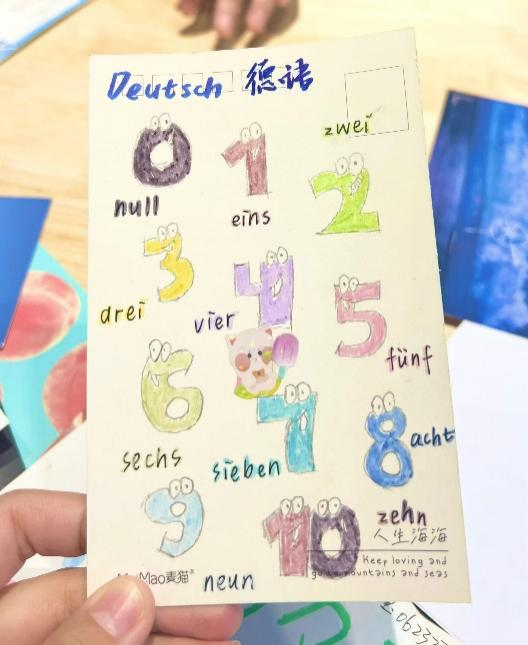 Deutsch 德语
zwei
0 1 2
null eins
3 4 5
drei vier
fünf
6 7 8
sechs sieben acht
9 10
zehn
人生海海
Keep loving and
mountains and seas
Mao麦猫
neun